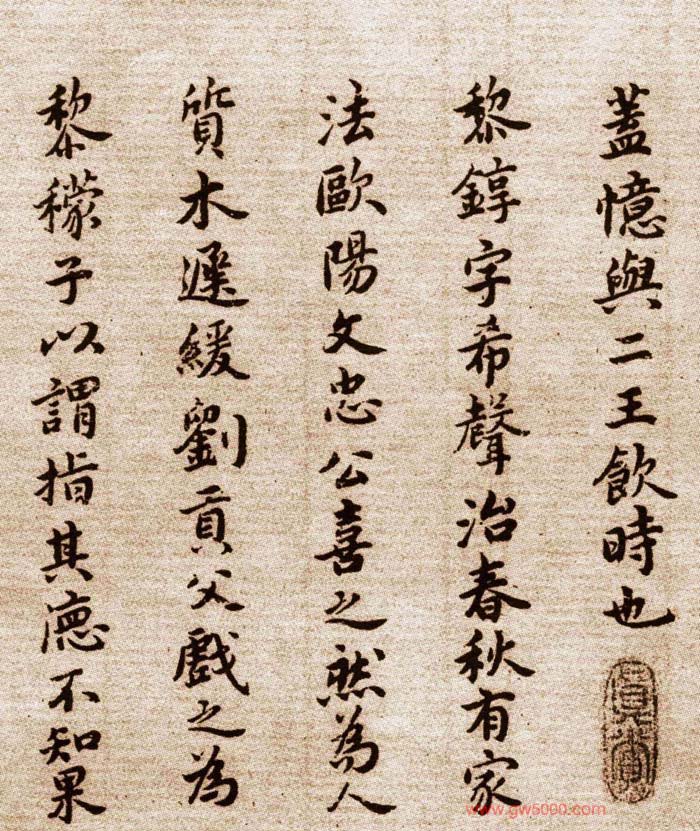 蓋憶與二王飲時也
黎錞字希聲治春秋有家
法歐陽文忠公喜之然為人
質木遲緩劉貢父戲之為
黎檬子以謂指其德不知果
真賞
www.gw5000.com